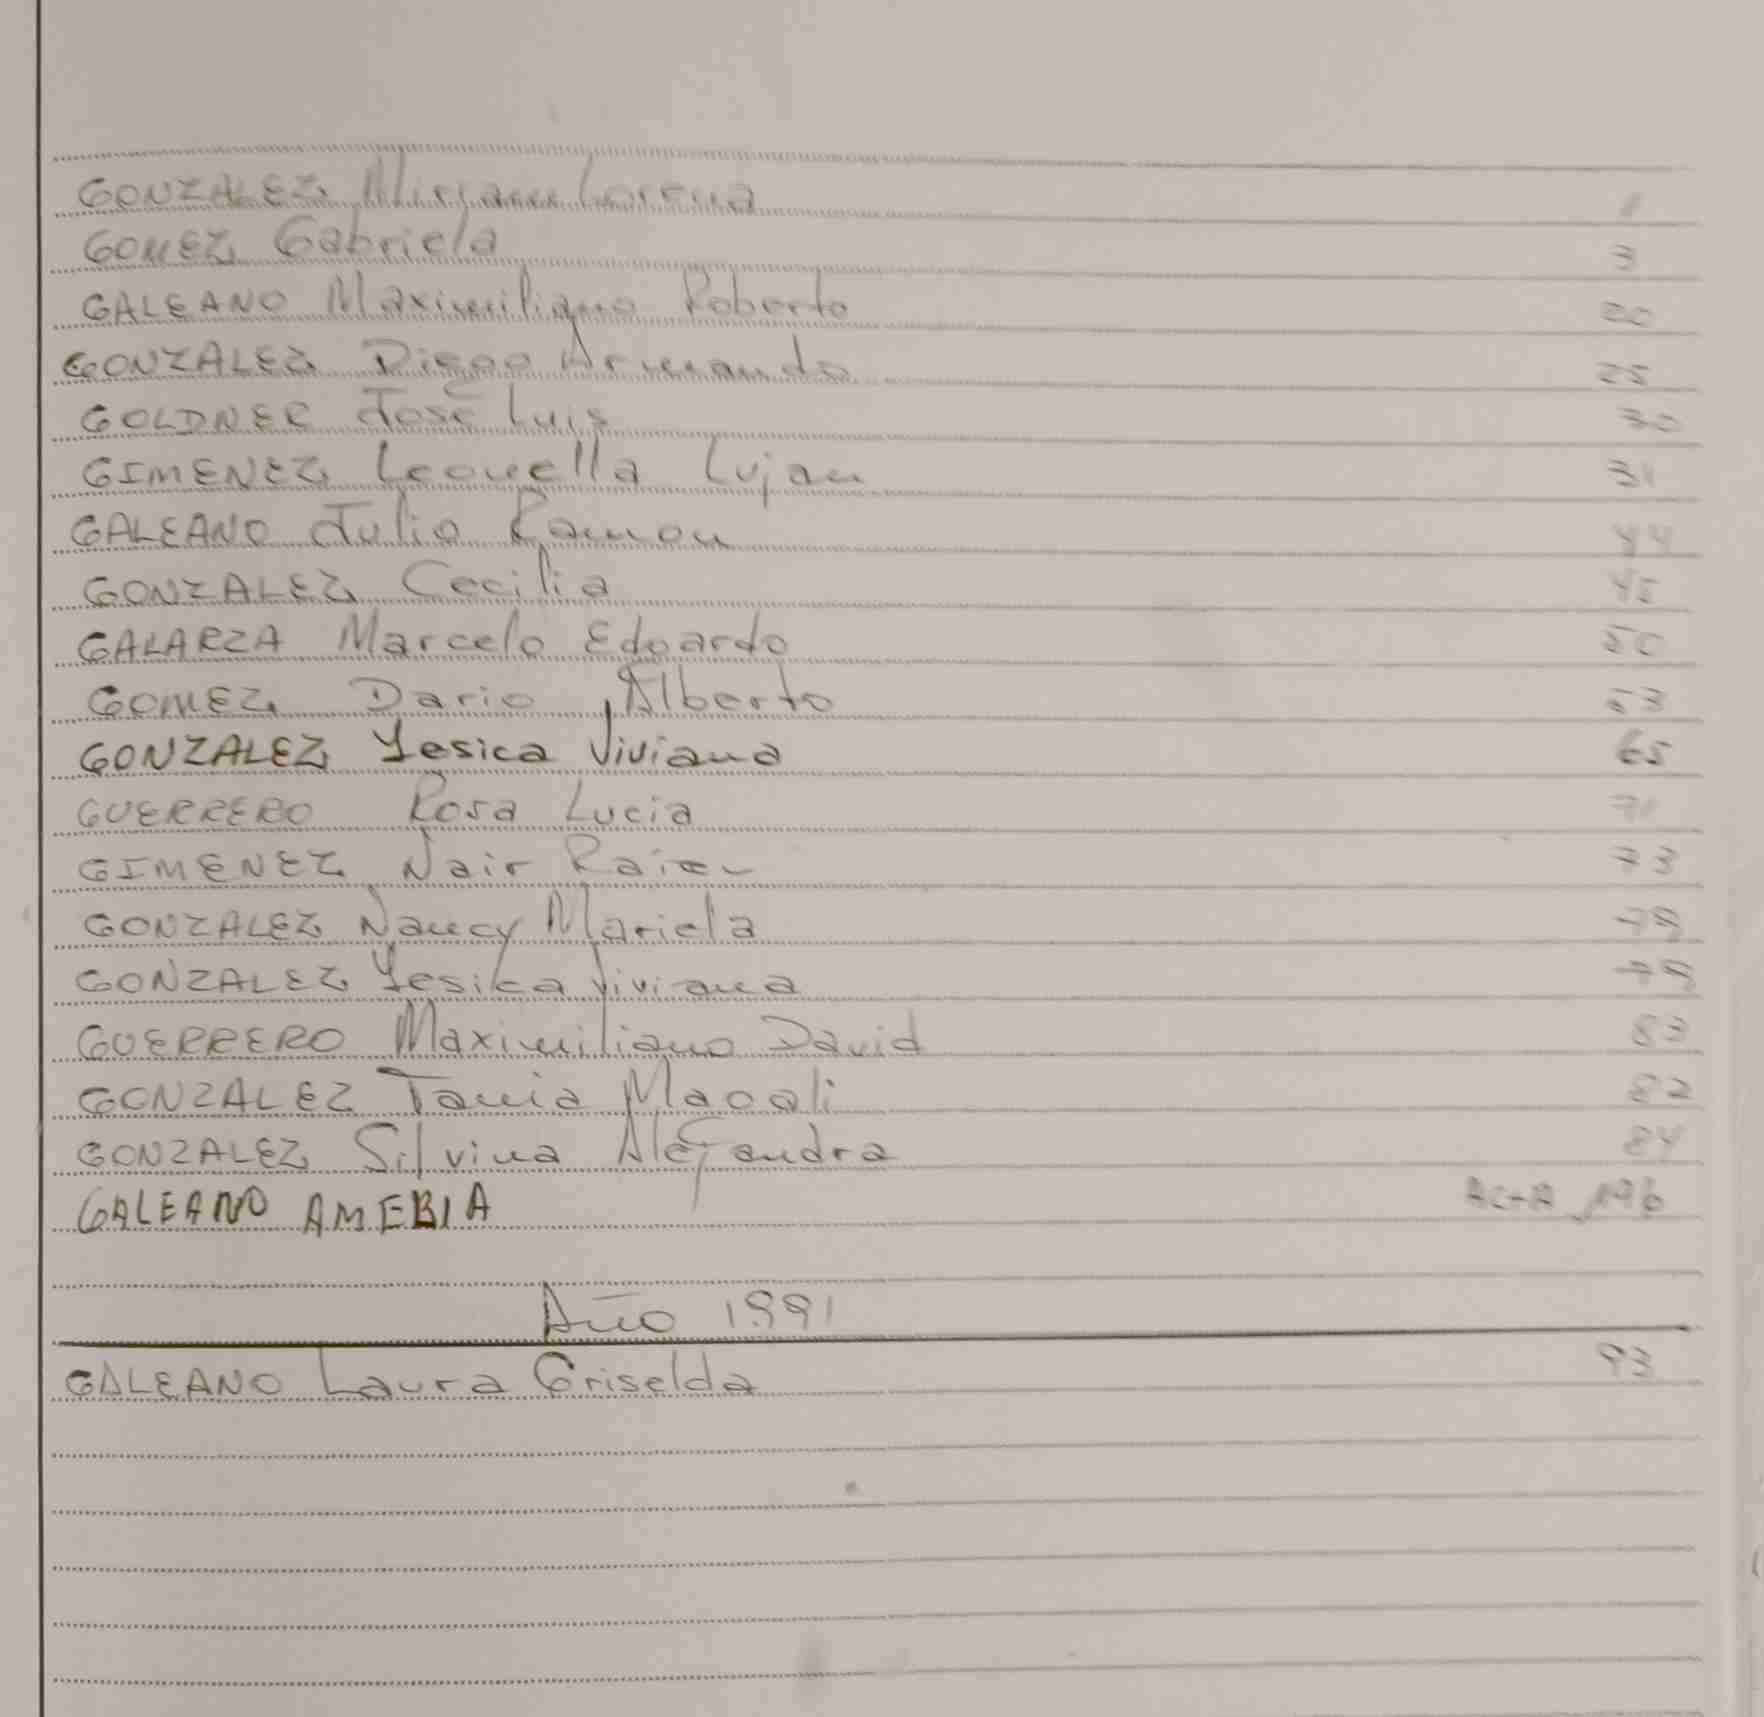 GONZALEZ Miriam Lorena 1
GOMEZ Gabriela 3
GALEANO Maximiliano Roberto 20
GONZALEZ Diego Armando 25
GOLDNER José Luis 30
GIMENEZ Leonella Lujan 31
GALEANO Julio Ramon 44
GONZALEZ Cecilia 45
GALARZA Marcelo Eduardo 50
GOMEZ Dario Alberto 53
GONZALEZ Yesica Viviana 65
GUERRERO Rosa Lucia 71
GIMENEZ Nair 73
GONZALEZ Nancy Mariela
GONZALEZ Yesica Viviana
GUERRERO Maximiliano David 83
GONZALEZ Tania Magali 82
GONZALEZ Silvina Alejandra 84
GALEANO AMEBIA ACTA
Año 1991
GALEANO Laura Griselda 93